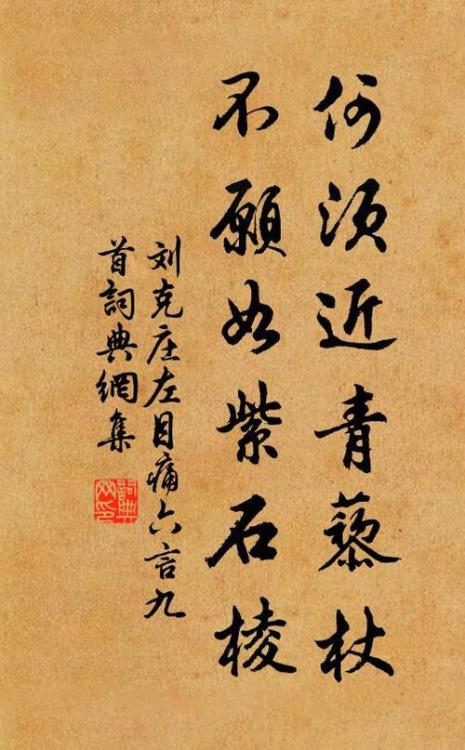 何须近青藜杖
不願如紫石棱
刘克庄左目痛六言九
首詞典網集
詞典
网印